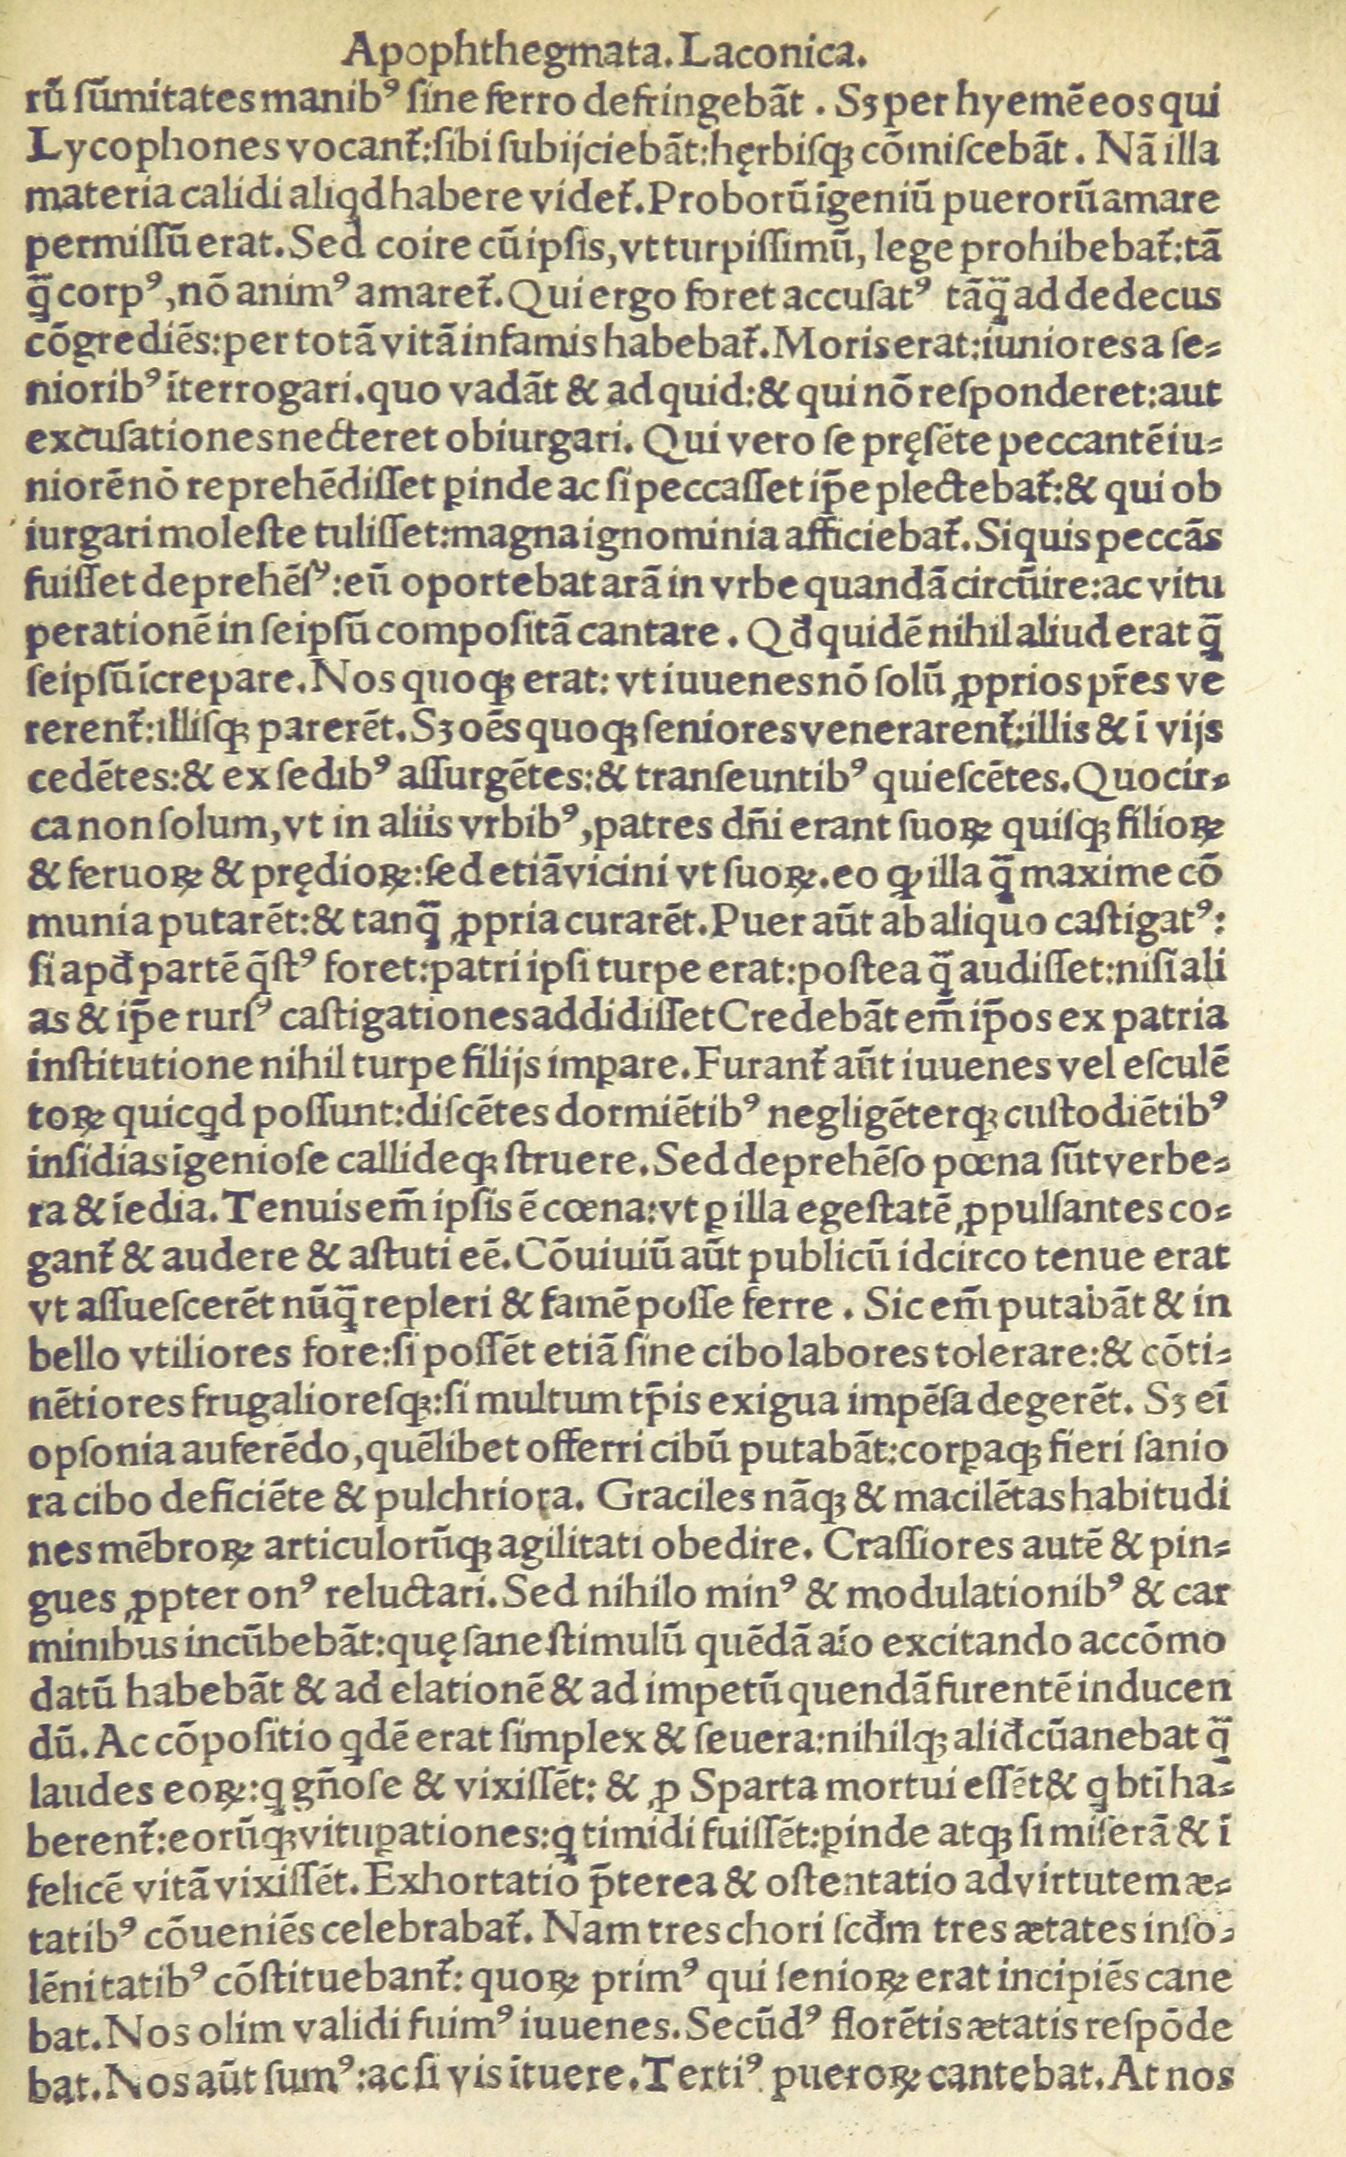 Apophthegmata. Laconica.
rū ſūmitates manibꝰ ſine ferro defringebāt . Sꝫ per hyemē eos qui
Lycophones vocantᷣ: ſibi ſubijciebāt: hęrbiſqꝫ cōmiſcebāt . Nā illa
materia calidi aliꝗd habere videtᷣ. Proborū īgeniū puerorū amare
permiſſū erat. Sed coire cū ipſis, vt turpiſſimū, lege prohibebatᷣ: tā
q̄ corpꝰ, nō animꝰ amaretᷣ. Qui ergo foret accuſatꝰ tāq̄ ad dedecus
cōgrediēs: per totā vitā infamis habebatᷣ. Moris erat: iuniores a ſe-
nioribꝰ īterrogari. quo vadāt & ad quid: & qui nō reſponderet: aut
excuſationes necteret obiurgari. Qui vero ſe pręſēte peccantē iu-
niorē nō reprehēdiſſet ꝑinde ac ſi peccaſſet ip̄e plectebatᷣ: & qui ob
iurgari moleſte tuliſſet: magna ignominia afficiebatᷣ. Siquis peccās
fuiſſet deprehēſꝰ: eū oportebat arā in vrbe quandā circūire: ac vitu
perationē in ſeipſū compoſitā cantare . Qđ quidē nihil aliud erat q̄
ſeipſū īcrepare. Nos quoqꝫ erat: vt iuuenes nō ſolū ꝓprios pr̄es ve
rerentᷣ: illiſqꝫ parerēt. Sꝫ oēs quoqꝫ ſeniores venerarentᷣ: illis & ī vijs
cedētes: & ex ſedibꝰ aſſurgētes: & tranſeuntibꝰ quieſcētes. Quocir-
ca non ſolum, vt in aliis vrbibꝰ, patres dn̄i erant ſuoꝝ quiſqꝫ filioꝝ
& feruoꝝ & prędioꝝ: ſed etiā vicini vt ſuoꝝ. eo ꝙ illa q̄ maxime cō
munia putarēt: & tanq̄ ꝓpria curarēt. Puer aūt ab aliquo caſtigatꝰ:
ſi apđ partē q̄ſtꝰ foret: patri ipſi turpe erat: poſtea q̄ audiſſet: niſi ali
as & ip̄e rurſꝰ caſtigationes addidiſſet Credebāt em̄ ip̄os ex patria
inſtitutione nihil turpe filijs imꝑare. Furantᷣ aūt iuuenes vel eſculē
toꝝ quicꝗd poſſunt: diſcētes dormiētibꝰ negligēterqꝫ cuſtodiētibꝰ
inſidias īgenioſe callideqꝫ ſtruere. Sed deprehēſo pœna ſūt verbe-
ra & īedia. Tenuis em̄ ipſis ē cœna: vt ꝑ illa egeſtatē ꝓpulſantes co-
gantᷣ & audere & aſtuti eē. Cōuiuiū aūt publicū idcirco tenue erat
vt aſſueſcerēt nūq̄ repleri & famē poſſe ferre . Sic em̄ putabāt & in
bello vtiliores fore: ſi poſſēt etiā ſine cibo labores tolerare: & cōti-
nētiores frugalioreſqꝫ: ſi multum tp̄is exigua impēſa degerēt. Sꝫ eī
opſonia auferēdo, quēlibet offerri cibū putabāt: corꝑaqꝫ fieri ſanio
ra cibo deficiēte & pulchriora. Graciles nāqꝫ & macilētas habitudi
nes mēbroꝝ articulorūqꝫ agilitati obedire. Craſſiores autē & pin-
gues ꝓpter onꝰ reluctari. Sed nihilo minꝰ & modulationibꝰ & car
minibus incūbebāt: quę ſane ſtimulū quēdā aīo excitando accōmo
datū habebāt & ad elationē & ad impetū quendā furentē inducen
dū. Ac cōpoſitio ꝗdē erat ſimplex & ſeuera: nihilqꝫ aliđ cūanebat q̄
laudes eoꝝ: ꝗ gn̄oſe & vixiſſēt: & ꝓ Sparta mortui eſſēt & ꝗ btī ha-
berentᷣ: eorūqꝫ vituꝑationes: ꝗ timidi fuiſſēt: ꝑinde atqꝫ ſi miſerā & ī
felicē vitā vixiſſēt. Exhortatio p̄terea & oſtentatio ad virtutem æ-
tatibꝰ cōueniēs celebrabatᷣ. Nam tres chori ſcđm tres ætates in ſo-
lēnitatibꝰ cōſtituebantᷣ: quoꝝ primꝰ qui ſenioꝝ erat incipiēs cane
bat. Nos olim validi fuimꝰ iuuenes. Secūdꝰ florētis ætatis reſpōde
bat. Nos aūt ſumꝰ: ac ſi vis ītuere. Tertiꝰ pueroꝝ cantebat. At nos